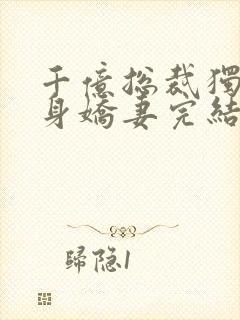 千億总裁獨
身嬌妻完結
歸隐1